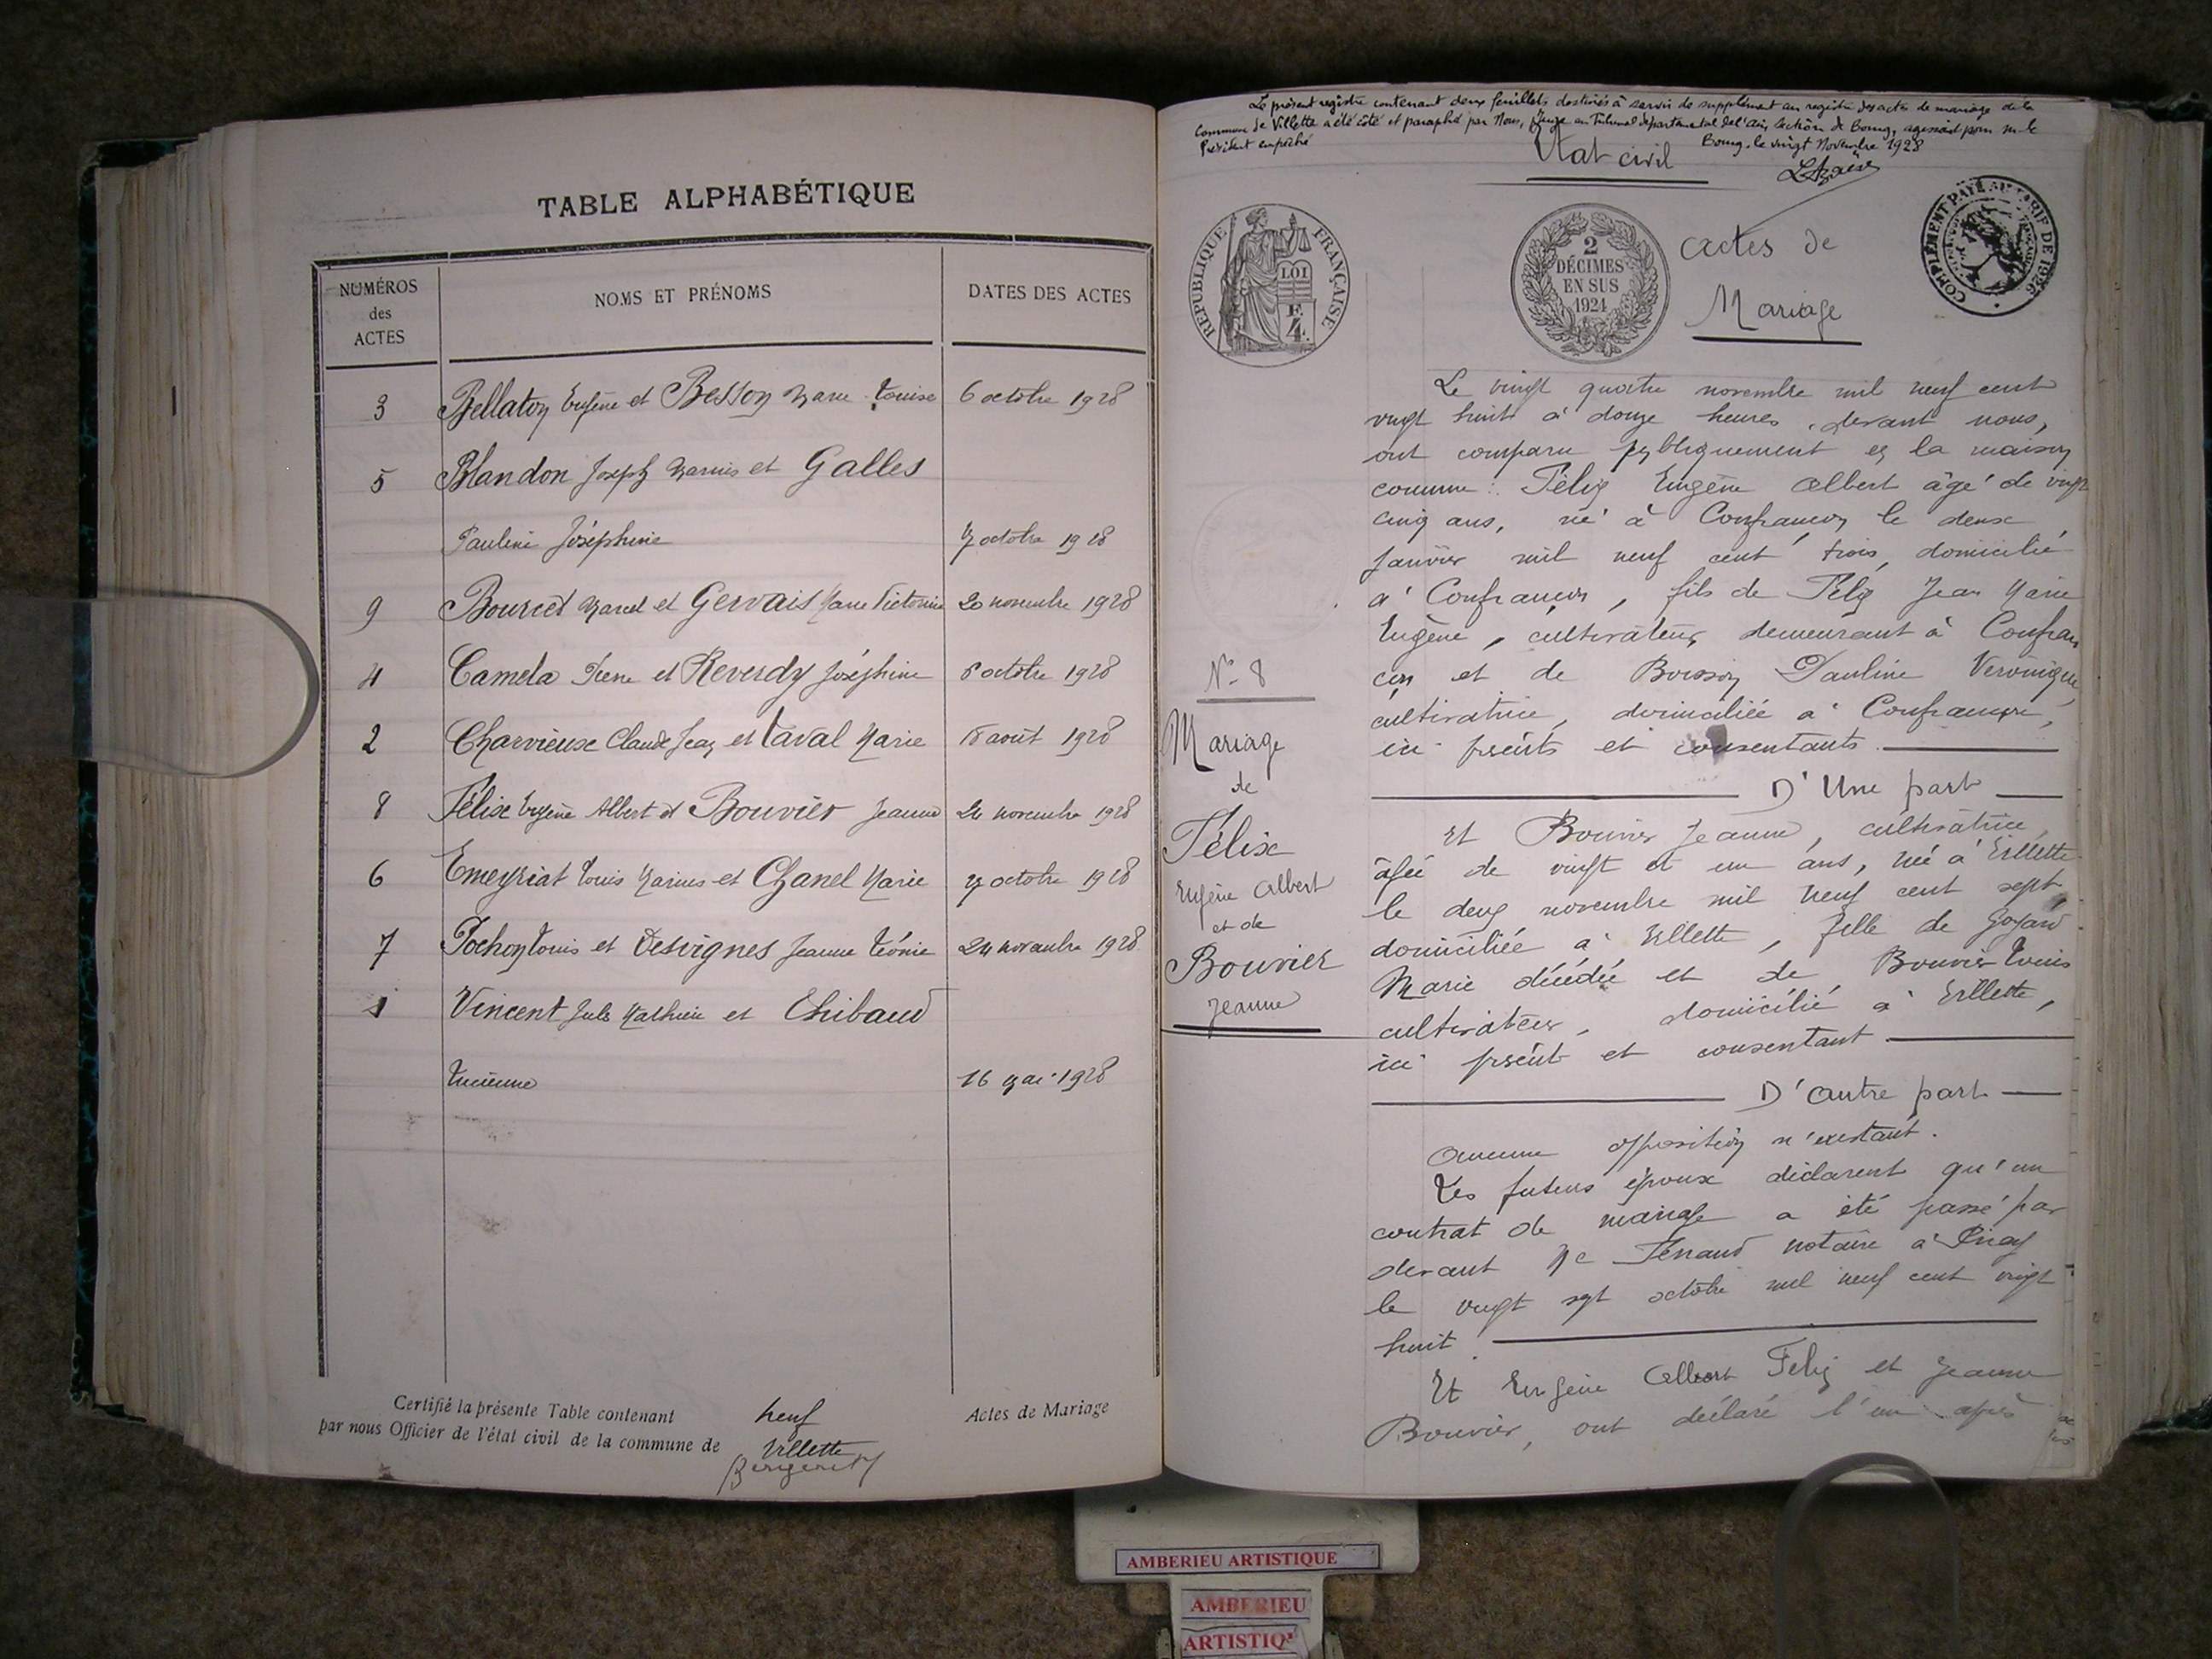 TABLE ALPHABÉTIQUE
NUMÉROS
des
ACTES
NOMS ET PRÉNOMS
DATES DES ACTES
3 Bellaton Eugène et Besson Marie Louise 6 octobre 1928
5 Blandon Joseph Marius et Galles
Pauline Joséphine 7 octobre 1928
9 Bourcet Marcel et Gervais Marie Victorine 20 novembre 1928
4 Camela et Reverdy Joséphine 6 octobre 1928
2 Charvieux Claude Jean et Laval Marie 18 août 1928
8 Félix Eugène Albert et Bouvier Jeanne 24 novembre 1928
6 Emeyriat Louis Marius et Chanel Marie 7 octobre 1928
7 Pochon Louis et Desvignes Jeanne Léonie 24 novembre 1928
1 Vincent Jules Mathieu et Thibaud
Lucienne 16 mai 1928
Certifié la présente Table contenant neuf Actes de Mariage
par nous Officier de l'état civil de la commune de Villette
Le présent registre contenant deux feuillets destinés à servir de supplément au registre des actes de mariage de la
Commune de Villette a été côté et paraphé par Nous, Juge au Tribunal départemental de l'ain, section de Bourg, agissant pour m. le
Président empêché Bourg, le vingt Novembre 1928
Etat civil
RÉPUBLIQUE FRANÇAISE
LOI
E
4.
2
DÉCIMES
EN SUS
1924
COMPLÉMENT PAYÉ AU TARIF DE 1926
Actes de
Mariage
No 8
Mariage
de
Félix
Eugène Albert
et de
Bouvier
Jeanne
Le vingt quatre novembre mil neuf cent
vingt huit à douze heures, devant nous,
ont comparu publiquement en la maison
commune : Félix Eugène Albert âgé de vingt
cinq ans, né à Confrançon le deux
janvier mil neuf cent trois, domicilié
à Confrançon, fils de Félix Jean Marie
Eugène, cultivateur, demeurant à Confran
çon et de Boisson Pauline Véronique,
cultivatrice, domiciliée à Confrançon,
ici présents et consentants.
D'Une part
Et Bouvier Jeanne, cultivatrice,
âgée de vingt et un ans, née à Villette
le deux novembre mil neuf cent sept,
domiciliée à Villette, fille de Goyard
Marie décédée et de Bouvier Louis
cultivateur, domicilié à Villette,
ici présent et consentant
D'autre part
Aucune opposition n'existant.
Les futurs époux déclarent qu'un
contrat de mariage a été passé par
devant Me notaire à Priay
le vingt sept octobre mil neuf cent vingt
huit.
Et Eugène Albert Félix et Jeanne
Bouvier, ont déclaré l'un après
AMBERIEU ARTISTIQUE
AMBERIEU
ARTISTIQ